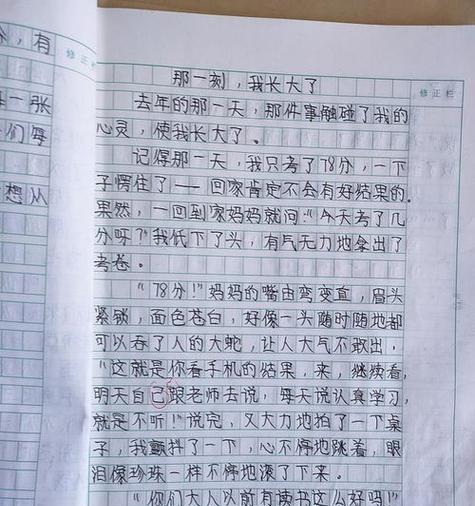 ，有
修正栏
一张
们每
想从
那一刻，我长大了
修正栏
去年的那一天，那件事触碰了我的
心灵，使我长大了。
记得那一天，我只考了78分，一下
子愣住了——回家肯定不会有好结果的。
果然，一回到家妈妈就问："今天考了几
分呀？"我低下了头，有气无力地拿出了
考卷。
"78分！"妈妈的嘴由弯变直，眉头
紧锁，面色苍白，好像一头随时随地都
可以吞了人的大蛇，让人大气不敢出，
"这就是你看手机的结果，来，继续看，
明天自己跟老师去说，每天说认真学习，
就是不听！"说完，又大力地拍了一下桌
子，我颤抖了一下，心不停地跳着，眼
泪像珍珠一样不停地滚了下来。
"你们大人以前有读书这么好吗！"